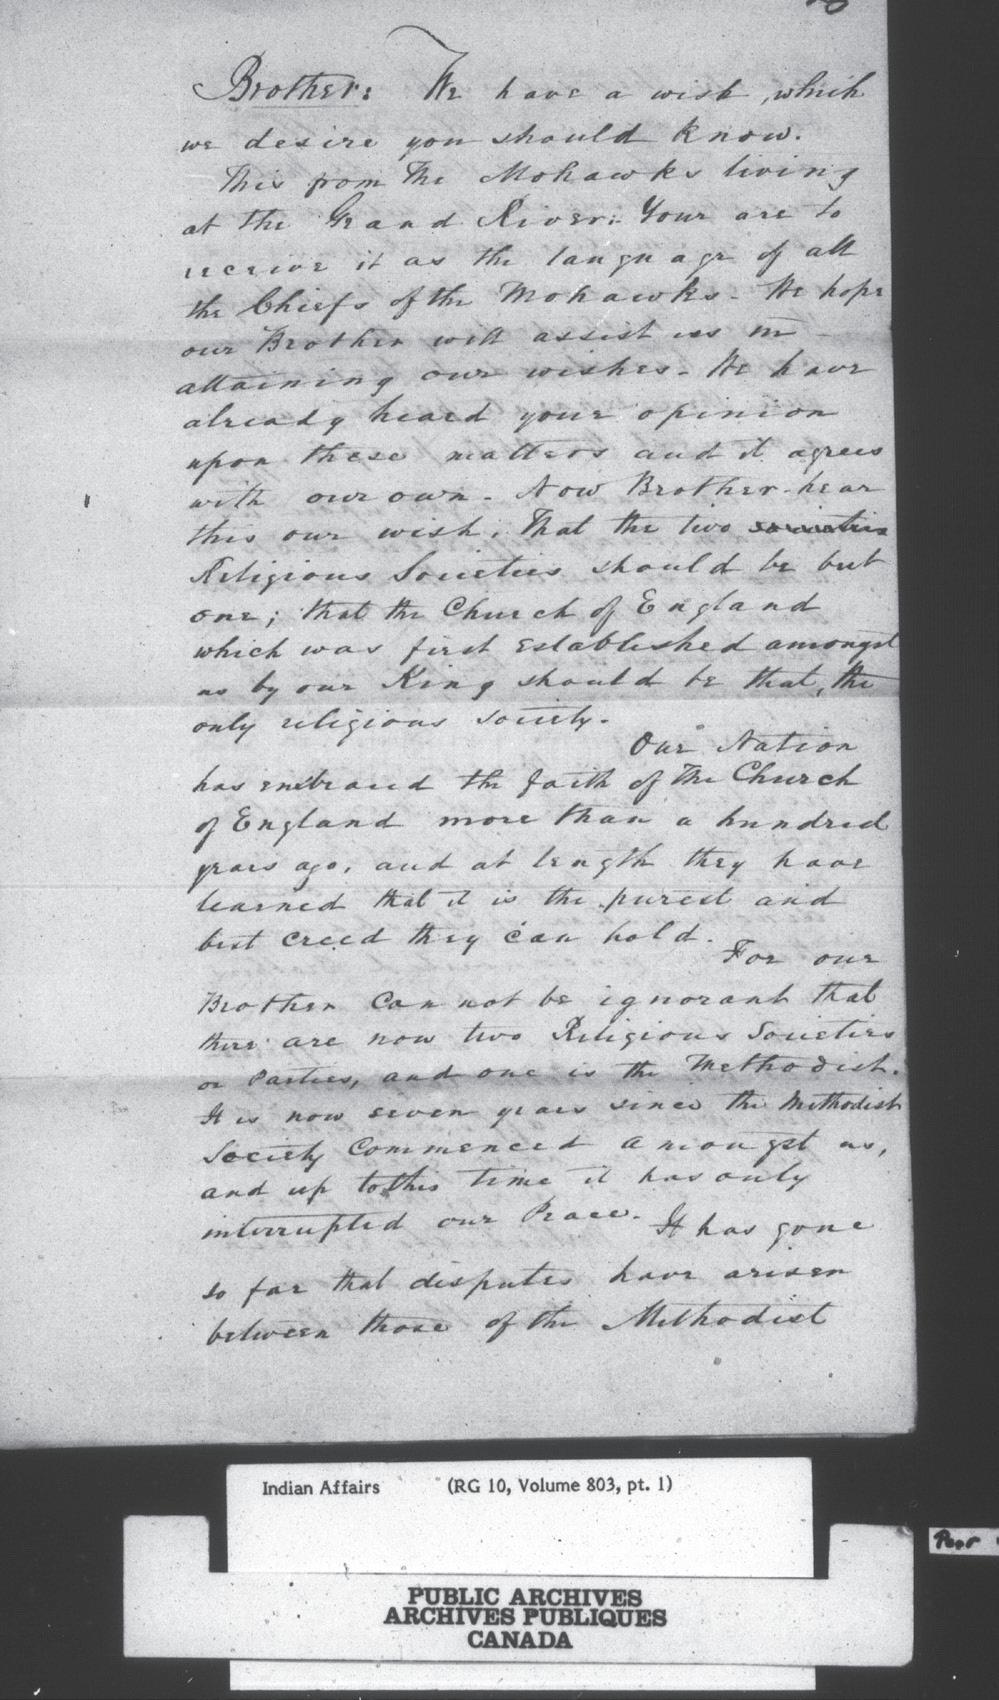 Brother: We have a wish, which
we desire you should know.
This from the Mohawks living
at the Grand River: Your are to
receive it as the language of all
the Chiefs of the Mohawks - We hope
our Brother will assist us in -
attaining our wishes - We have
already heard your opinion
upon these matters and it agrees
with our own - Now Brother hear
this our wish, That the two societies
Religious Societies should be but
one; that the Church of England
which was first established amongst
us by our King should be that, the
only religious society.
Our Nation
has embraced the faith of the Church
of England more than a hundred
years ago, and at length they have
learned that it is the purest and
best creed they can hold.
For our
Brother can not be ignorant that
there are now two Religious Societies
or Parties, and one is the Methodist.
It is now seven years since the Methodist
Society Commenced amongst us,
and up to this time it has only
interrupted our Peace. It has gone
so far that disputes have arisen
between those of the Methodist
Indian Affairs (RG 10, Volume 803, pt. 1)
Poor
PUBLIC ARCHIVES
ARCHIVES PUBLIQUES
CANADA